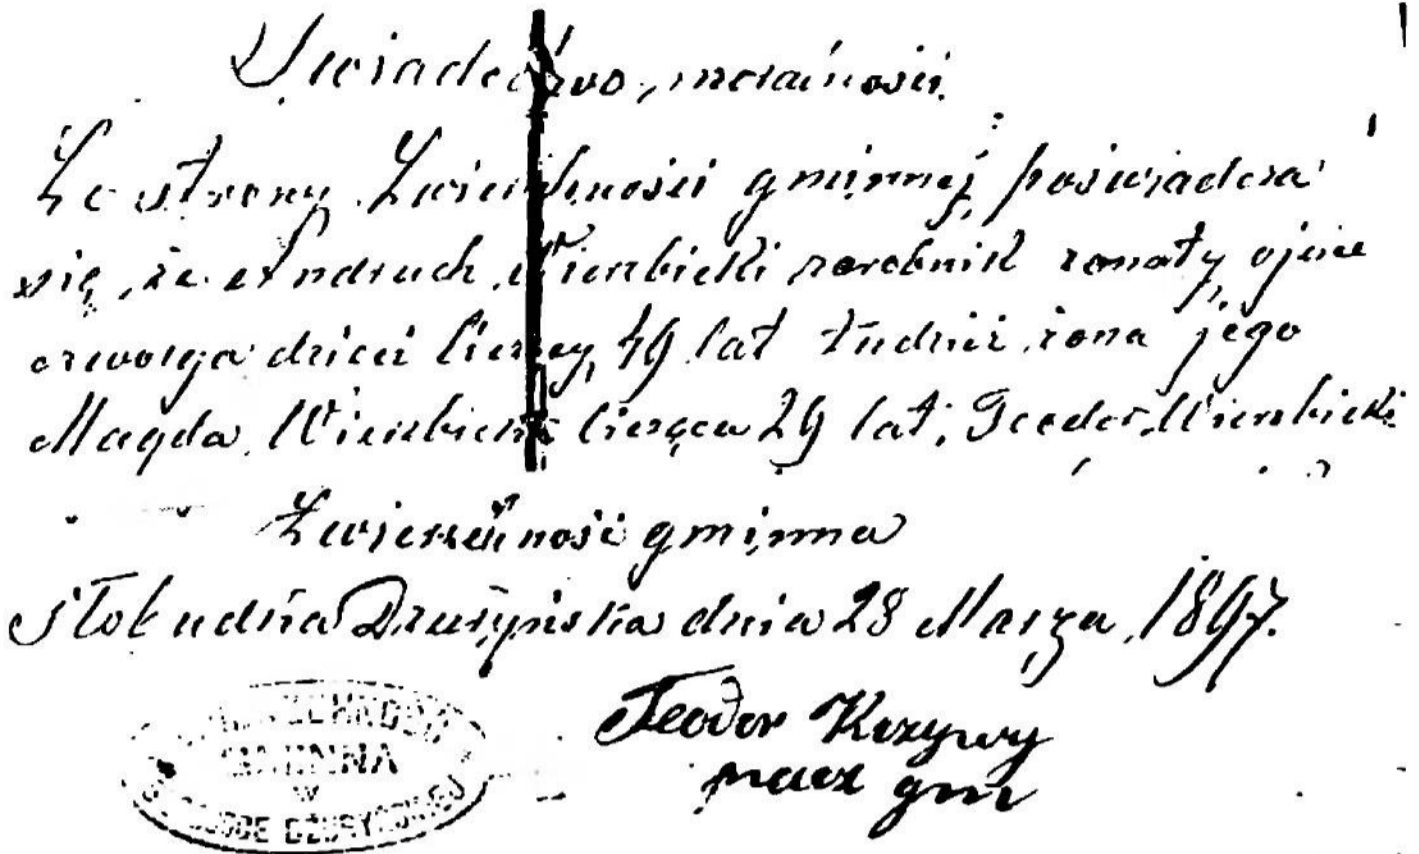 Świadectwo moralności.
Ze strony Zwierzchności gminnej poświadcza
się, że Andruch Wierzbicki zarobnik żonaty, ojciec
czworga dzieci liczący 49 lat tudzież żona jego
Magda Wierzbicka licząca 29 lat, Teodor Wierzbicki
Zwierzchność gminna
Słobudka Dżuryńska dnia 28 Marza 1897.
Teodor Krzywy
nacz gm
GMINNA
W
DŻURYŃSKIEJ